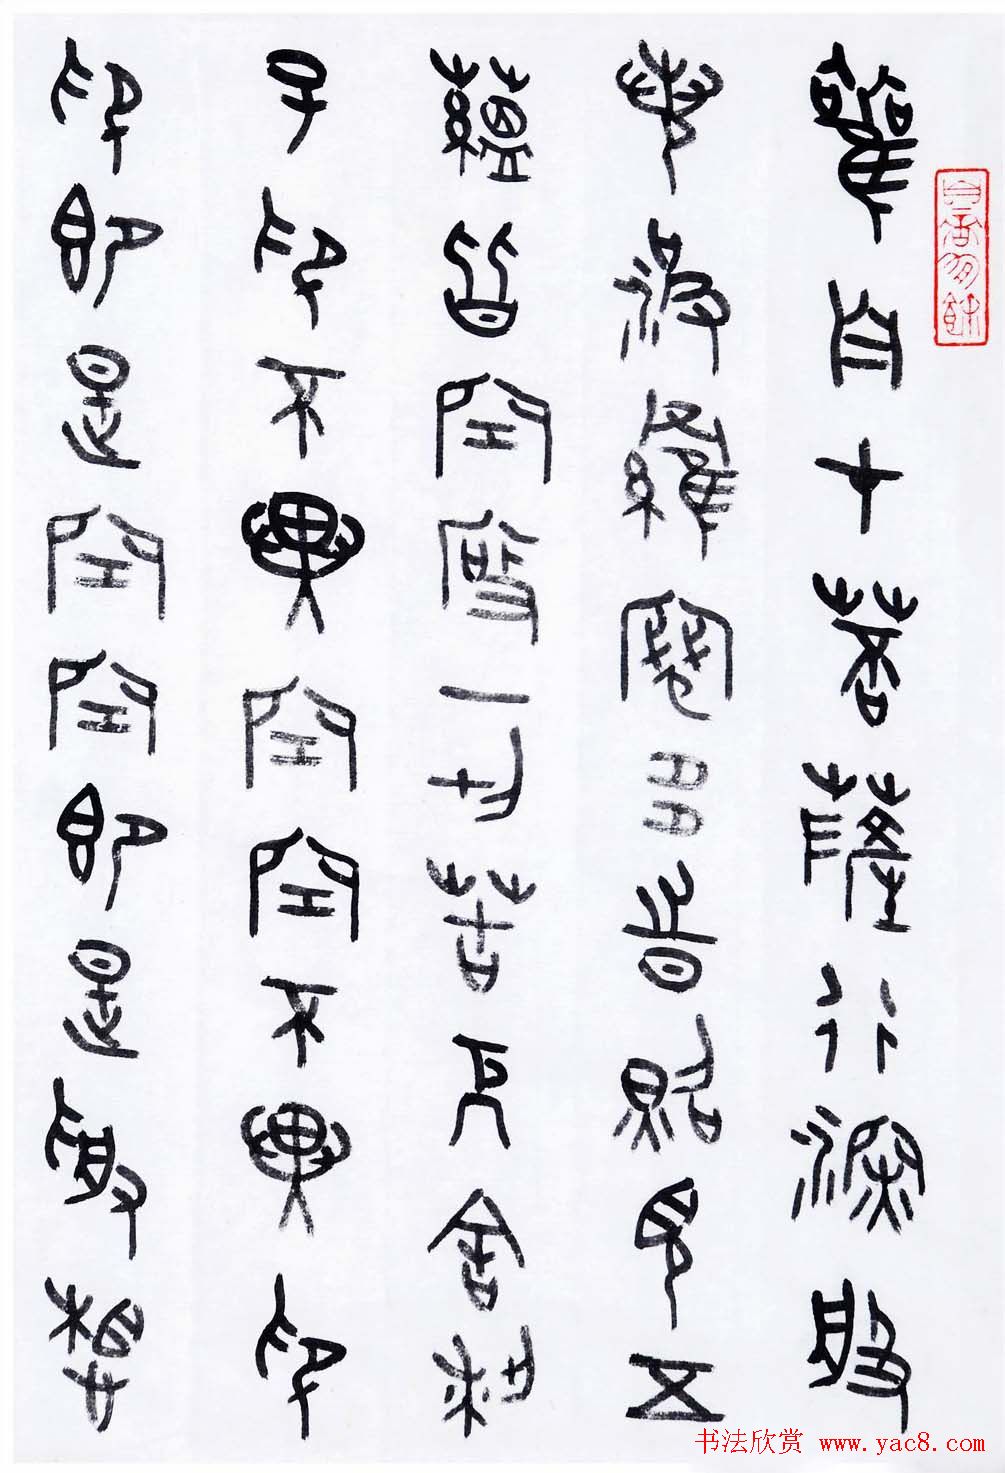 觀自在菩薩行深般
若波羅蜜多時照見五
蘊皆空度一切苦厄舍利
子色不異空空不異色
色即是空空即是受想
书法欣赏 www.yac8.com